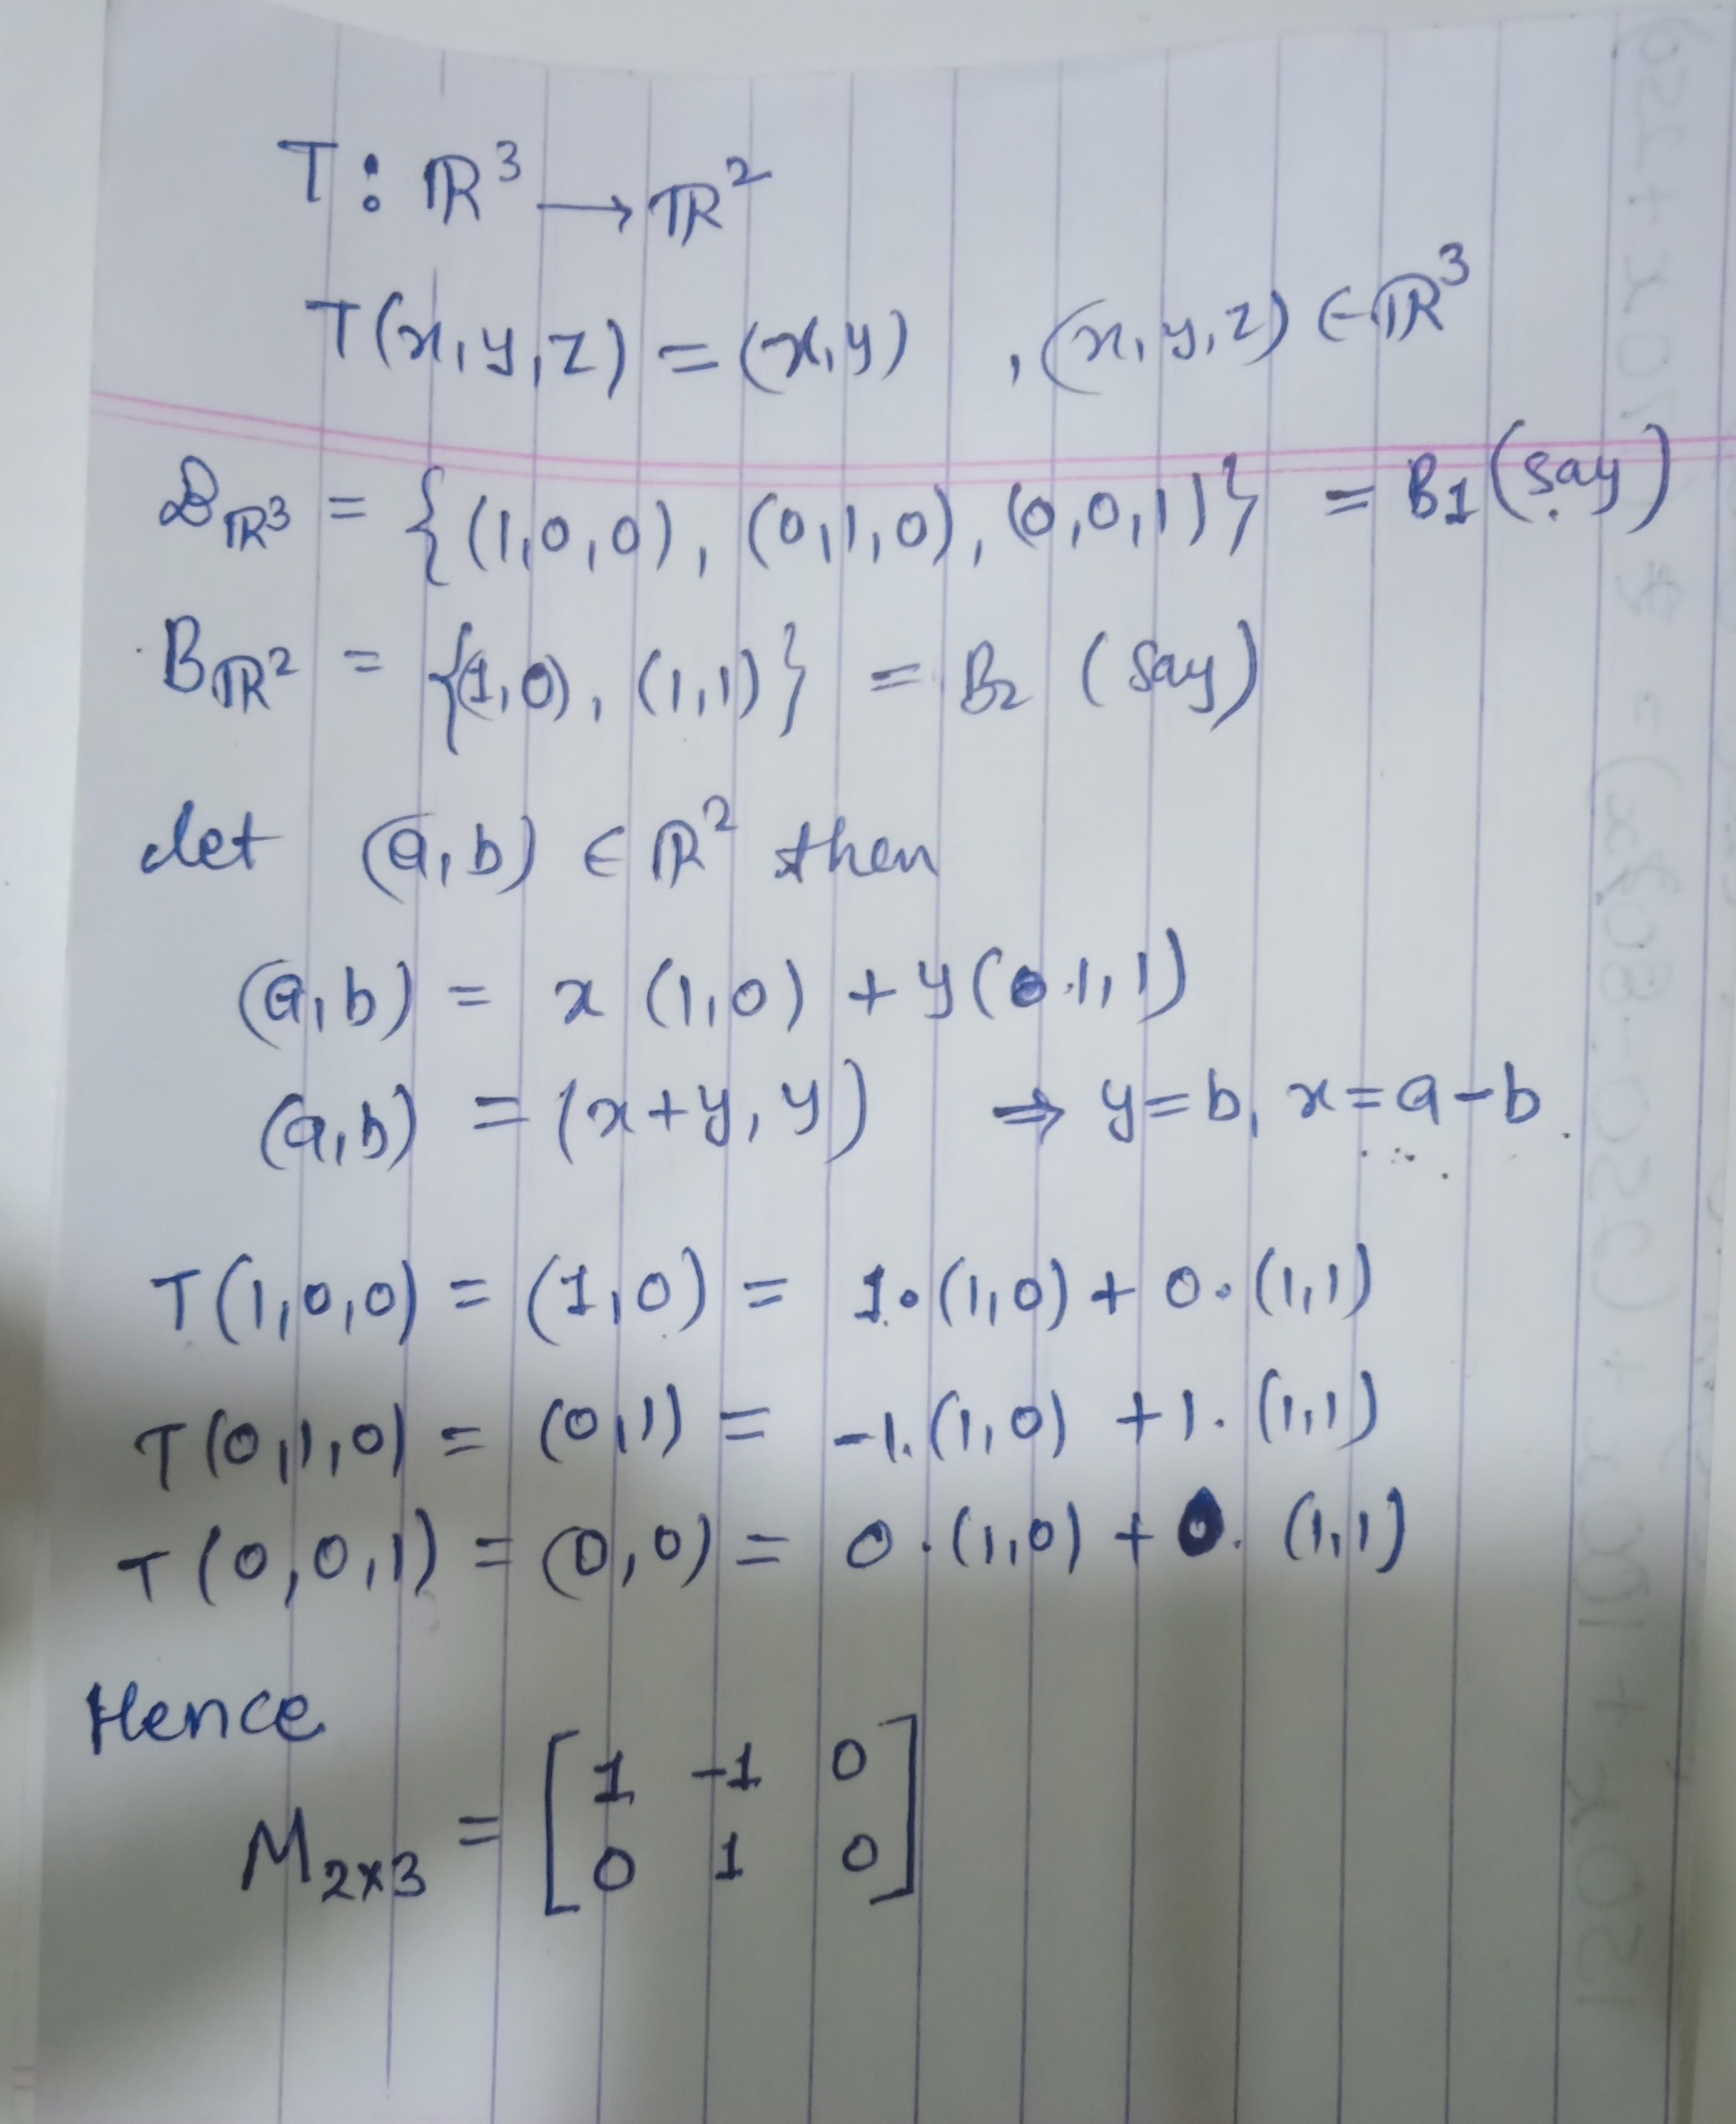 T : ℝ³ → ℝ²
T(x, y, z) = (x, y) , (x, y, z) ∈ ℝ³
B_ℝ³ = {(1,0,0), (0,1,0), (0,0,1)} = B1 (say)
B_ℝ² = {(1,0), (1,1)} = B₂ (say)
let (a,b) ∈ ℝ² then
(a,b) = x (1,0) + y (1,1)
(a,b) = (x+y, y) ⇒ y = b, x = a-b.
T(1,0,0) = (1,0) = 1.(1,0) + 0.(1,1)
T(0,1,0) = (0,1) = -1.(1,0) + 1.(1,1)
T(0,0,1) = (0,0) = 0.(1,0) + 0.(1,1)
Hence
M₂ₓ₃ = [1 -1 0
0 1 0]